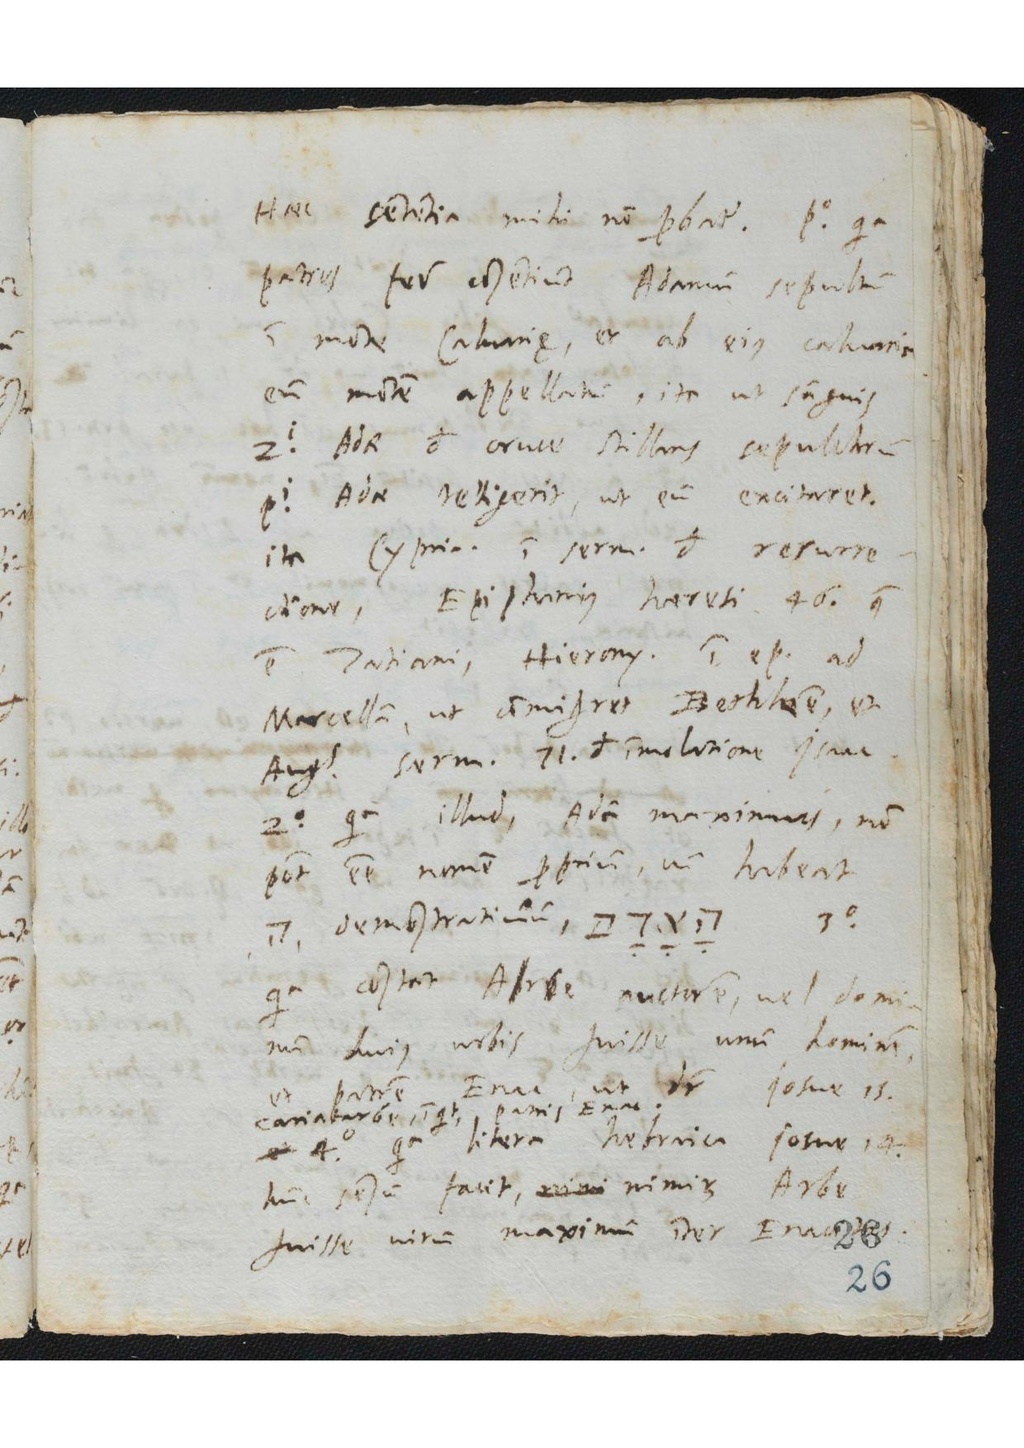 Haec sētētia mihi nō ꝓbat᷑. pº. qa
patres ferè cōsētiūt Adamū sepultū
ī mōte Caluarię, et ab eiꝰ caluaria
eū mōtē appellatū, ita ut sāguis
2.i Adae đ cruce stillans sepulchrū
p.i Adae tetigerit, ut eū excitaret.
ita Cypria. ī serm. đ resurre-
ctione, Epiphaniꝰ haeresi 46. q̄
ē Tatiani, Hierony. ī ep. ad
Marcellā, ut cōmigret Bethleē, et
Augͬ. serm. 71. đ īmolatione Isaac.
2.º qa illud, Adā maximus, nō
pōt eē nomē ꝓprium, cū habeat
ה, demōstratiuum, הָאָדָם 3.º
qa cōstat Arbe auctorē, vel domi-
nū huiꝰ urbis fuisse unū hominē,
et patrē Enac, ut dr̄ Josue 15.
cariatarbe, īqt, patris Enac.
4.º qa litera hebraica josue 14.
hūc sēsū facit, nimiꝝ Arbe
fuisse uirū maximū īter Enacites.
26
26